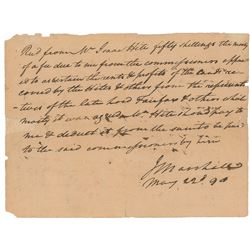 Recd from Mr Isaac Hite fifty shillings the moiety
of a fee due to me from the commissioners appoin
to ascertain the rents & profits of the lands re
covered by the Hites & others from the representa
tives of the late lord Fairfax & others which
moity it was agreed Mr Hite should pay to
me & deduct it from the sum to be paid
to the said commissioners by him
J Marshall
May 22d 90